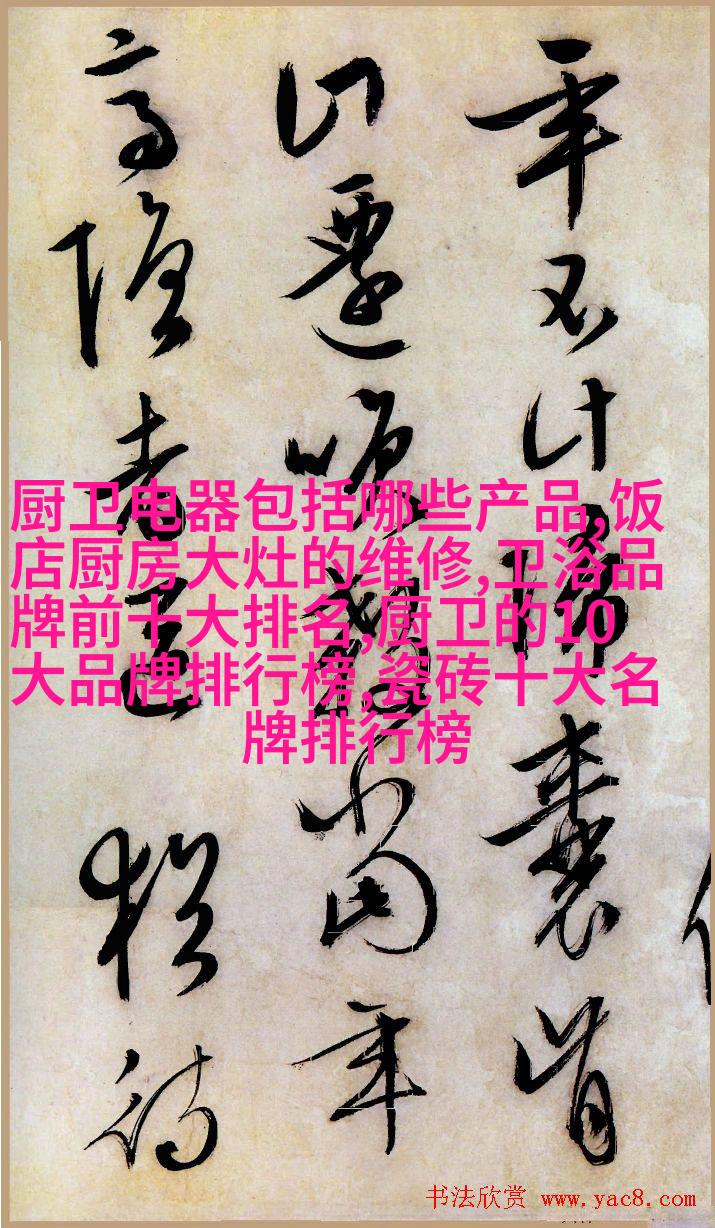 厨卫电器包括哪些产品,饭
店厨房大灶的维修,卫浴品
牌前十大排名,厨卫的10
大品牌排行榜,瓷砖十大名
牌排行榜
年不計歸囊肯
遷當年
高隱者
书法欣赏 www.yac8.com